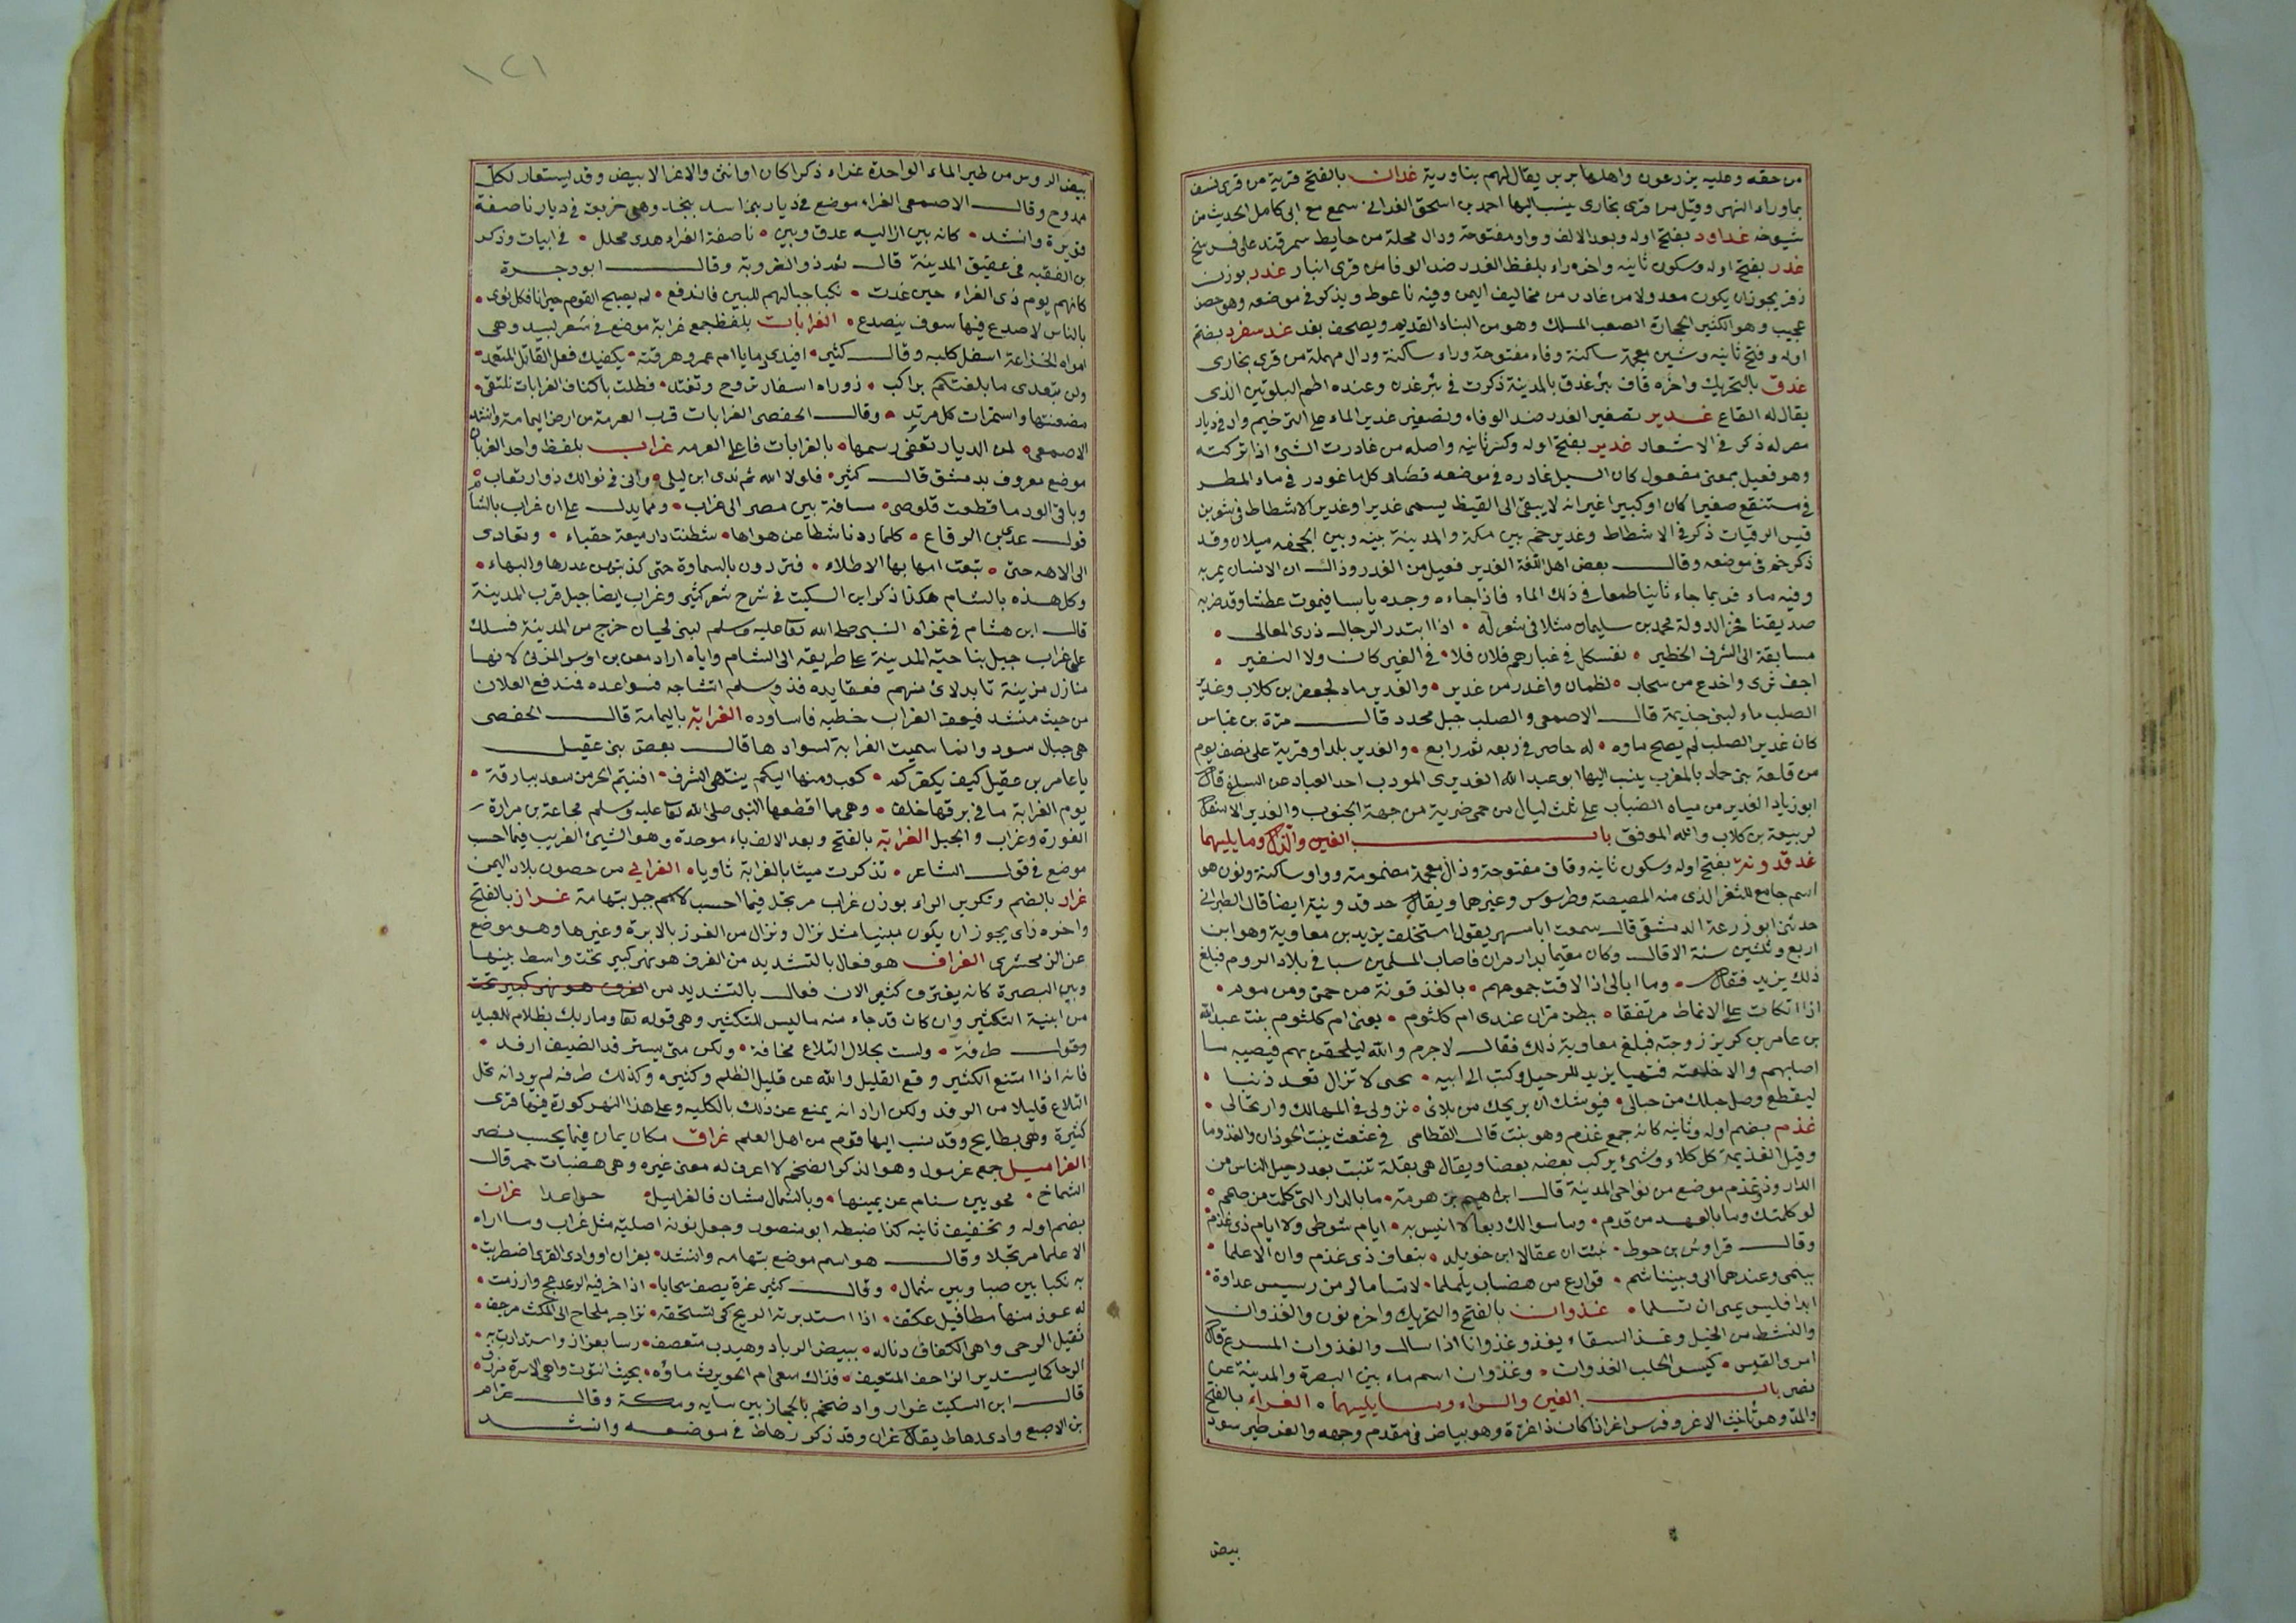 من حقه وعليه يزرعون واهلها بربر يقال لهم بناورية غدان بالفتح قرية من قرى نسف
بماوراء النهر وقيل من قرى بخارى ينسب اليها احمد بن اسحق الغدانى سمع مع ابى كامل الحديث من
شيوخه غداود بفتح اوله وبعد الالف واو مفتوحة ودال محلة من حايط سمرقند على فرسخ
غدر بفتح اوله وسكون ثانيه واخره راء بلفظ الغدر ضد الوفا من قرى انبار غدر بوزن
زفر يجوز ان يكون معدولا من غادر من مخاليف اليمن وفيه ناعوط ويذكر فى موضعه وهو حصن
عجيب وهو الكثير الحجارة الصعب المسلك وهو من البناء القديم ويصحف بعذر غدشفرد بضم
اوله وفتح ثانيه وشين معجمة ساكنة وفاء مفتوحة وراء ساكنة ودال مهملة من قرى بخارى
غدق بالتحريك واخره قاف بئر غدق بالمدينة ذكرت فى بئر غدق وعنده اطم البلويين الذى
يقال له القاع غدير تصغير الغدر ضد الوفاء وتصغير غدير الماء على الترخيم واد فى ديار
مضر له ذكر فى الاشعار غدير بفتح اوله وكسر ثانيه واصله من غادرت الشئ اذا تركته
وهو فعيل بمعنى مفعول كان السيل غادره فى موضعه فصار كل ما غودر فى ماء المطر
فى مستنقع صغيرا كان او كبيرا غير انه لا يبقى الى القيظ يسمى غديرا وغدير الاشطاط فى شعر بن
قيس الرقيات ذكر فى الاشطاط وغدير خم بين مكة والمدينة بينه وبين الجحفه ميلان وقد
ذكر خم فى موضعه وقال بعض اهل اللغة الغدير فعيل من الغدر وذاك ان الانسان يمر به
وفيه ماء فربما جاء ثانيا طمعا فى ذلك الماء فاذا جاءه وجده يابسا فيموت عطشا وقد ضربه
صديقنا فخر الدولة محمد بن سليمان مثلا فى شعر له • اذا ابتدر الرجال ذرى المعالى •
مسابقة الى الشرف الخطير • نفسكل فى غبارهم فلان فلا • فى العير كان ولا النفير •
اجف ثرى واخدع من سحاب • لظمان واغدر من غدير • والغدير ماء لجعفر بن كلاب وغدير
الصلب ماء لبنى جذيمة قال الاصمعى والصلب جبل محدد قال مرة بن عباس
كان غدير الصلب لم يصح ماوه • له حاصر فى ربعه ثم رابع • والغدير بلد او قرية على نصف يوم
من قلعة بنى حماد بالمغرب ينسب اليها ابو عبد الله الغديرى المودب احد العباد عن السلفى قال
ابو زياد الغدير من مياه الضباب على ثلث ليال من حمى ضرية من جهة الجنوب والغدير الاسفل
لربيعة بن كلاب والله الموفق باب الغين والذال وما يليهما
غذقذونه بفتح اوله وسكون ثانيه وقاف مفتوحة وذال معجمة مضمومة وواو ساكنة ونون هو
اسم جامع للثغر الذى منه المصيصة وطرسوس وغيرهما ويقال خذقدونية ايضا قال الطبرانى
حدثنى ابو زرعة الدمشقى قال سمعت ابا مسهر يقول استخلف يزيد بن معاوية وهو ابن
اربع وثلثين سنة الا قال وكان مقيما بدار مران فاصاب المسلمين سبا فى بلاد الروم فبلغ
ذلك يزيد فقال • وما ابالى اذا لاقت جموعهم • بالغذقذونة من حمى ومن موم •
اذا اتكات على الانماط مرتفقا • ببطن مران عندى ام كلثوم • يعنى ام كلثوم بنت عبد الله
بن عامر بن كريز زوجته فبلغ معاوية ذلك فقال لا جرم والله ليلحقن بهم فيصيبه ما
اصابهم والا خلعته فتهيا يزيد للرحيل وكتب الى ابيه • تجنى لا تزال تعد ذنبا •
ليقطع وصل حبلك من حبالى • فيوشك ان يريحك من بلائى • نزولى فى المهالك وارتحالى •
غذم بضم اوله وثانيه كانه جمع غذم وهو نبت قال القطامى فى عثعث ينبت الحوذان والغذوما
وقيل الغذيمة كل كلاء وشئ يركب بعضه بعضا ويقال هى بقلة تنبت بعد رحيل الناس من
الدار وذو غذم موضع من نواحى المدينة قال ابراهيم بن هرمة • ما بالدار التى كلمت من صمم •
لو كلمتك وما بالعهد من قدم • وما سوالك ربعا لا انيس به • ايام شوطى ولا ايام ذى غذم •
وقال قراوش بن حوط • نبئت ان عقالا ابن خويلد • بنعاف ذى غذم وان الاعلما •
ينمى وعندهما الى وبيننا شم • فوارع من هضاب يلملما • لا تساما لى من رسيس عداوة •
ابدا فليس يمى ان تسلما • غذوان بالفتح والتحريك واخره نون والغذوان
والنشط من الخيل وغذ السقاء يغذو غذوانا اذا سال والغذوان المسرع قال
امرو القيس • كتيس الحلب الغذوان • وغذوان اسم ماء بين البصرة والمدينة عن
نصر باب الغين والراء وما يليهما • الغراء بالفتح
والمد وهو ثانيث الاغر وفرس اغر اذا كان ذا غرة وهو بياض فى مقدم وجهه والغر طير سود
بيض
١٢١
بيض الروس من طير الماء الواحدة غراء ذكرا كان او انثى والاغر الابيض وقد يستعار لكل
ممدوح وقال الاصمعى الغراء موضع فى ديار بنى اسد بنجد وهى جريعة فى ديار ناصفة
قويرة وانشد • كانه بين ازاليه عدق وبين • ناصفة الغراء هدى محلل • فى ابيات وذكر
بن الفقيه فى عقيق المدينة قال ثم ذو الغروبة وقال ابو وجزة
كانهم يوم ذى الغراء حين غدت • نكبا جبالهم للبين فاندفع • لم يصبح القوم جيرانا فكل نوى •
بالناس لا صدع فيها سوف ينصدع • الغرابات بلفظ جمع غرابة موضع فى شعر لبيد وهى
امواه لخزاعة اسفل كلية وقال كثير • اقيدى دما يا ام عمرو هرقته • يكفيك فعل القاتل المتعمد •
ولن يتعدى ما بلغتكم براكب • زوراه اسفار تروح وتغتد • فظلت باكناف الغرابات تلتقى •
مضنتها واستمرات كل مرتد • وقال الحفصى الغرابات قرب العرمة من ارض اليمامة وانشد
الاصمعى • لمن الديار تعفى رسمها • بالغرابات فاعلى العرمه غراب بلفظ واحد الغربان
موضع معروف بدمشق قال كثير • فلولا الله ثم ندى ابن ليلى • وانى فى نوالك ذو ارتعاب •
وباقى الود ما قطعت قلوصى • مسافة بين مصر الى غراب • ومما يدل على ان غراب بالشام
قول عدى بن الرقاع • كلما ردنا شطا عن هواها • شطنت دار ميعة حقباء • وتعادى
الى الاهه حتى • تبعت امها بها الاطلاء • فتردون بالسماوة حتى كذبتهن غدرها والنهاء •
وكل هذه بالشام هكذا ذكر ابن السكيت فى شرح شعر كثير وغراب ايضا جبل قرب المدينة
قال ابن هشام فى غزاه النبى صلى الله تعا عليه وسلم لبنى لحيان خرج من المدينة فسلك
على غراب جبل بناحية المدينة على طريقه الى الشام واياه اراد معن بن اوس المزنى لانها
منازل مزينة تابد لاى منهم فعقايده فذو سلم انشاجه فسواعده فمندفع الغلان
من حيث منشد فنعف الغراب خطبه فاساوده الغرابة باليمامة قال الحفصى
هى جبال سود وانما سميت الغرابة لسوادها قال بعض بنى عقيل
يا عامر بن عقيل كيف يكفركم • كعب ومنها اليكم ينتهى الشرف • افنيتم الحر من سعد ببارقة •
يوم الغرابة ما فى برقها خلف • وهى ما اقطعها النبى صلى الله تعا عليه وسلم مجاعة بن مرارة
الغورة وغراب والحبل الغرابة بالفتح وبعد الالف باء موحدة وهو الشئ الغريب فيما احسب
موضع فى قول الشاعر • تذكرت ميتا بالغرابة ثاويا • الغرابى من حصون بلاد اليمن
غرار بالضم وتكرير الراء بوزن غراب مرتجل فيما احسب لاسم جبل بتهامة غراز بالفتح
واخره زاى يجوز ان يكون مبنيا مثل نزال ونزال من الغرز بالابرة وغيرها وهو موضع
عن الزمخشرى الغراف هو فعال بالتشديد من الغرف هو نهر كبير تحت واسط بينها
وبين البصرة كانه يغترف كثيرا لان فعال بالتشديد من الغرف هو نهر كبير تحت
من ابنية التكثير وان كان قد جاء منه ما ليس للتكثير وهى قوله تعا وما ربك بظلام للعبيد
وقول طرفة • ولست بحلال التلاع مخافة • ولكن متى يسترفد الضيف ارفد •
فانه اذا امتنع الكثير وقع القليل والله عن قليل الظلم وكثيره وكذلك طرفه لم يرد انه يحل
التلاع قليلا من الرفد ولكن اراد انه يمنع عن ذلك بالكليه وعلى هذا النهر كورة فيها قرى
كثيرة وهى بطايح وقد نسب اليها قوم من اهل العلم غراق مكان يمان فيما يحسب نصر
الغراميل جمع غرمول وهو الذكر الضخم لا اعرف له معنى غيره وهى هضبات حمر قال
الشماخ • محويين سنام عن يمينها • وبالشمال مشان فالغراميل • غران
بضم اوله وتخفيف ثانيه كذا ضبطه ابو منصور وجعل نونه اصلية مثل غراب وما اراه
الا علما مرتجلا وقال هو اسم موضع بتهامه وانشد • بغران او وادى القرى اضطربت •
به نكبا بين صبا وبين شمال • وقال كثير عزة يصف سحابا • اذا خر فيه الرعد عج وارزمت •
له عوذ منها مطافيل عكف • اذا استدبرته الريح كى تستخفه • تزاجر ملحاح الى المكث مرجف •
ثقيل الرحى واهى الكفاف دنا له • ببيض الرباد وهيدب متعصف • رسا بغران واستدارت به •
الرحا كما يستدير الزاحف المتعيف • فذاك سقى ام الحويرث ماؤه • بحيث انتوت واهى الاسرة مرزف •
قال ابن السكيت غران واد ضخم بالحجاز بين سايه ومكة وقال عرام
بن الاصبع وادى رهاط يقال غران وقد ذكر رهاط فى موضعه وانشد